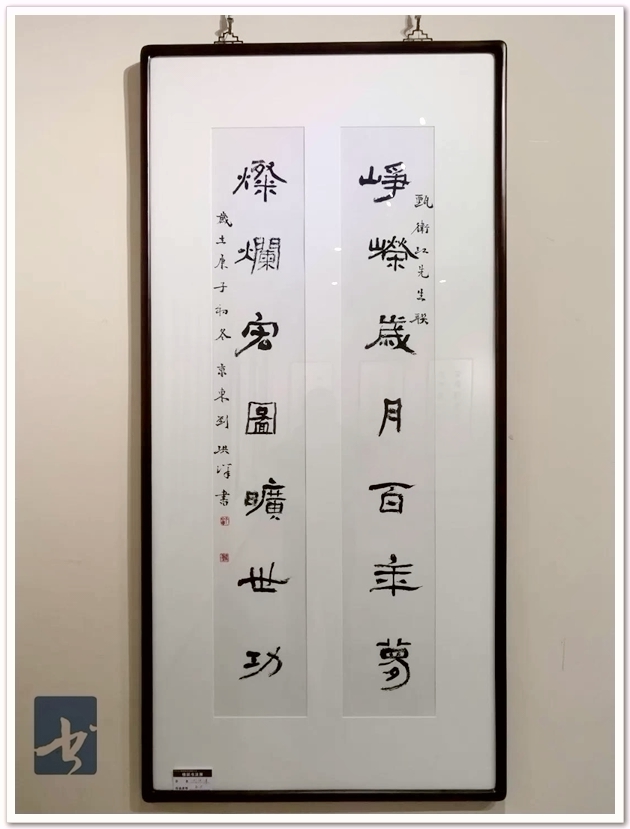 崢嶸歲月百年夢
甄衛江先生联
燦爛宏圖曠世功
歲在庚子初冬 京東劉洪洋書
书